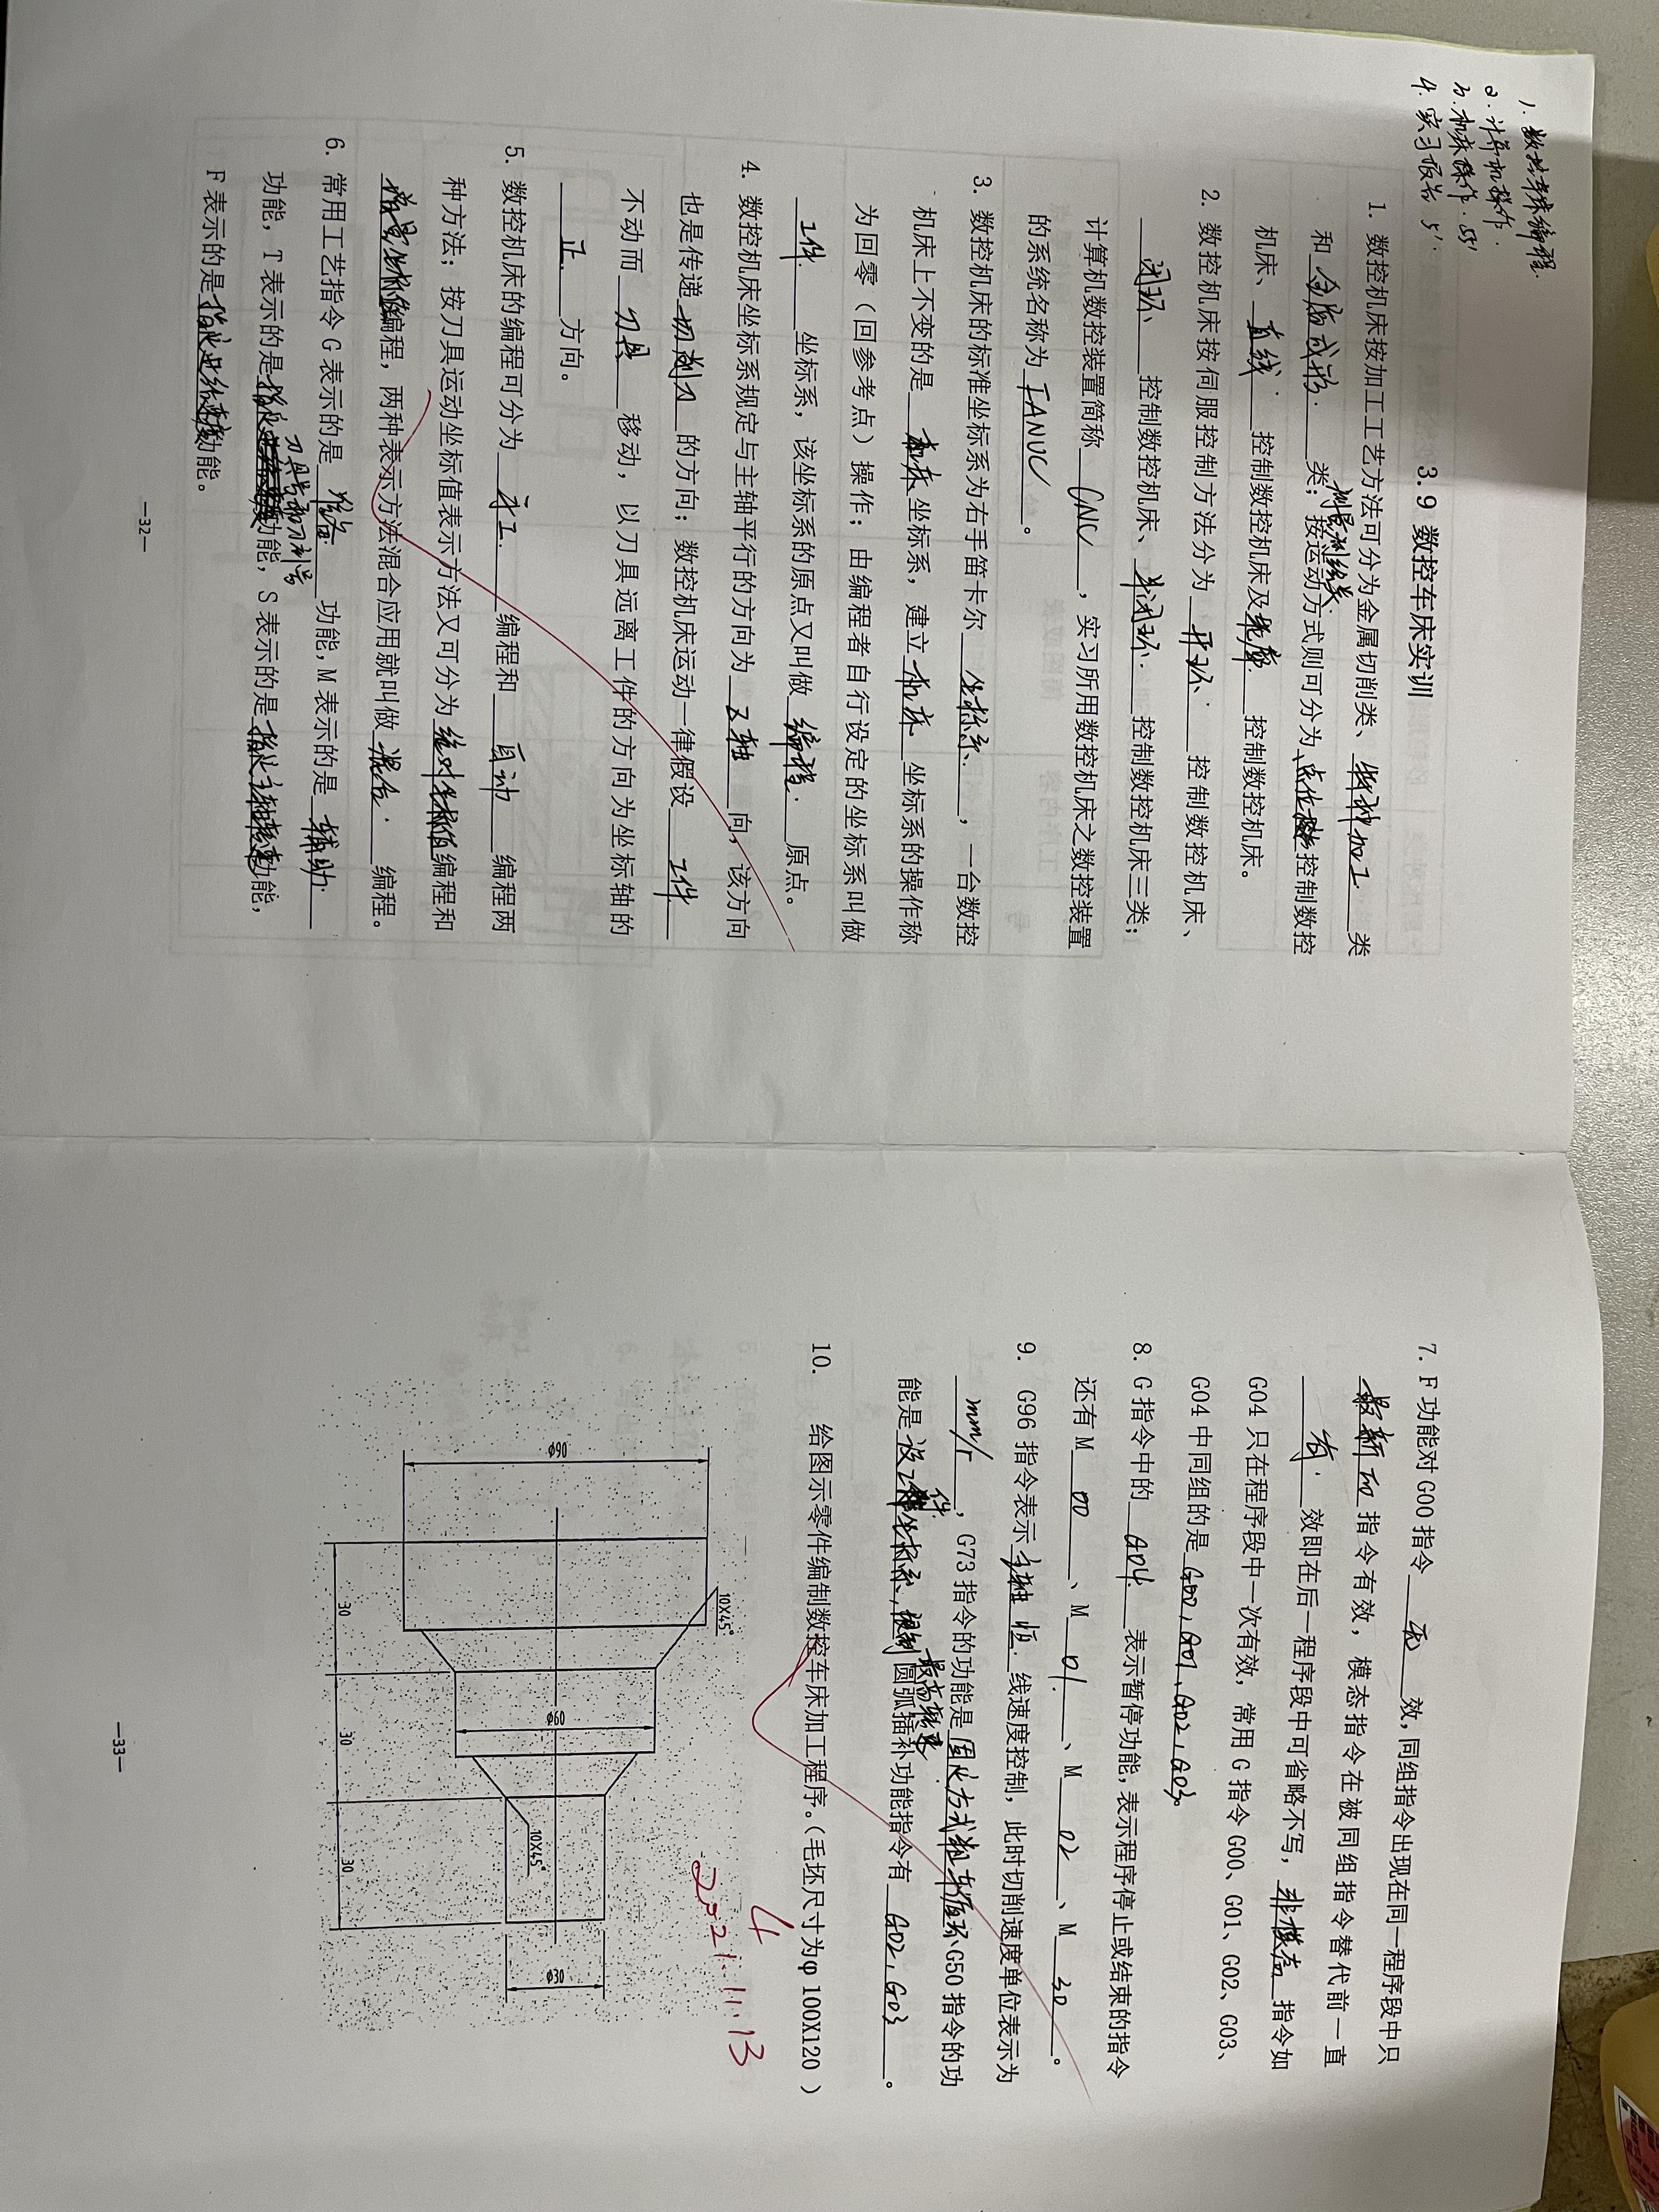 1. 数控车床编程.
2. 计算机操作.
3. 机床操作. 55'
4. 实习报告 5'.
3.9 数控车床实训
1. 数控机床按加工工艺方法可分为金属切削类、特种加工类
和金属成形.类; 测量、绘图类. 按运动方式则可分为点位控制数控
机床、直线.控制数控机床及轮廓控制数控机床。
2. 数控机床按伺服控制方法分为开环.控制数控机床、
闭环控制数控机床、半闭环.控制数控机床三类;
计算机数控装置简称CNC, 实习所用数控机床之数控装置
的系统名称为FANUC。
3. 数控机床的标准坐标系为右手笛卡尔坐标系., 一台数控
机床上不变的是机床坐标系, 建立机床坐标系的操作称
为回零（回参考点）操作; 由编程者自行设定的坐标系叫做
工件坐标系, 该坐标系的原点又叫做编程.原点。
4. 数控机床坐标系规定与主轴平行的方向为Z轴向, 该方向
也是传递切削力的方向; 数控机床运动一律假设工件
不动而刀具移动, 以刀具远离工件的方向为坐标轴的
正.方向。
5. 数控机床的编程可分为手工.编程和自动编程两
种方法; 按刀具运动坐标值表示方法又可分为绝对坐标值编程和
增量坐标值编程, 两种表示方法混合应用就叫做混合.编程。
6. 常用工艺指令G表示的是准备.功能, M表示的是辅助.
功能, T表示的是刀具号和刀补号功能, S表示的是指定主轴转速功能,
F表示的是指定进给速度功能。
—32—
7. F功能对G00指令无效, 同组指令出现在同一程序段中只
最新的指令有效, 模态指令在被同组指令替代前一直
有.效即在后一程序段中可省略不写, 非模态指令如
G04只在程序段中一次有效, 常用G指令G00、G01、G02、G03、
G04中同组的是G00, G01, G02, G03。
8. G指令中的G04.表示暂停功能, 表示程序停止或结束的指令
还有M00、M01.、M02、M30。
9. G96指令表示主轴恒.线速度控制, 此时切削速度单位表示为
mm/r, G73指令的功能是固定方式粗车循环G50指令的功
能是设工件坐标系, 限制最高转速 圆弧插补功能指令有G02, G03。
10. 给图示零件编制数控车床加工程序。（毛坯尺寸为φ100X120）
4
2021.11.13
10X45°
ϕ90
ϕ60
10X45°
ϕ30
30
30
30
—33—